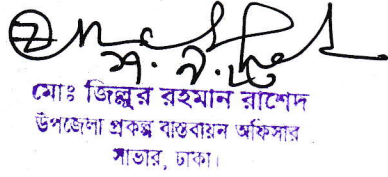 মোঃ জিল্লুর রহমান রাশেদ
উপজেলা প্রকল্প বাস্তবায়ন অফিসার
সাভার, ঢাকা।